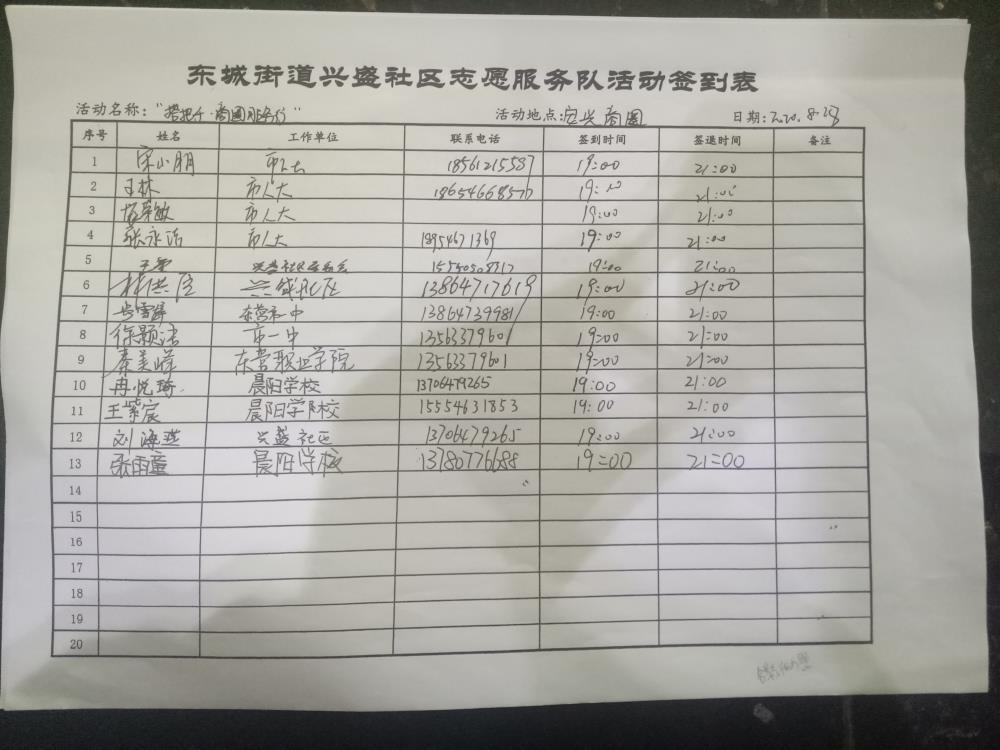 东城街道兴盛社区志愿服务队活动签到表
活动名称：“搭把手·商圈服务行 活动地点：宜兴商圈 日期：2020.8.28
序号 姓名 工作单位 联系电话 签到时间 签退时间 备注
1 宋小朋 市人大 18561215587 19:00 21:00
2 王林 市人大 18654668576 19:00 21:00
3 市人大 19:00 21:00
4 张永洁 市人大 1895471369 19:00 21:00
5 兴盛社区居委会 19:00 21:00
6 兴盛社区 13864717619 19:00 21:00
7 13864739981 19:00 21:00
8 徐颢洁 市一中 13563379601 19:00 21:00
9 秦美峰 东营职业学院 13563379601 19:00 21:00
10 冉悦琦 晨阳学校 13706479265 19:00 21:00
11 王紫宸 晨阳学校 15554631853 19:00 21:00
12 刘海燕 兴盛社区 13706479265 19:00 21:00
13 张雨童 晨阳学校 13780776688 19:00 21:00
14
15
16
17
18
19
20